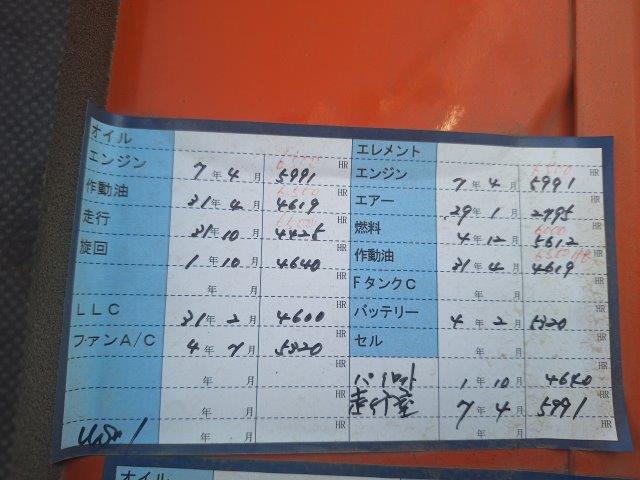 オイル
エンジン 7年 4月 5991 HR
作動油 31年 4月 4619 HR
走行 31年 10月 HR
旋回 1年 10月 4640 HR
年 月 HR
LLC 31年 2月 4600 HR
ファンA/C 4年 7月 5320 HR
年 月 HR
年 月 HR
年 月 HR
エレメント
エンジン 7年 4月 5991 HR
エアー 29年 1月 2795 HR
燃料 4年 12月 5612 HR
作動油 31年 4月 4619 HR
FタンクC 年 月 HR
バッテリー 4年 2月 5320 HR
セル 年 月 HR
パイロット 1年 10月 HR
7年 4月 5991 HR
年 月 HR
オイル